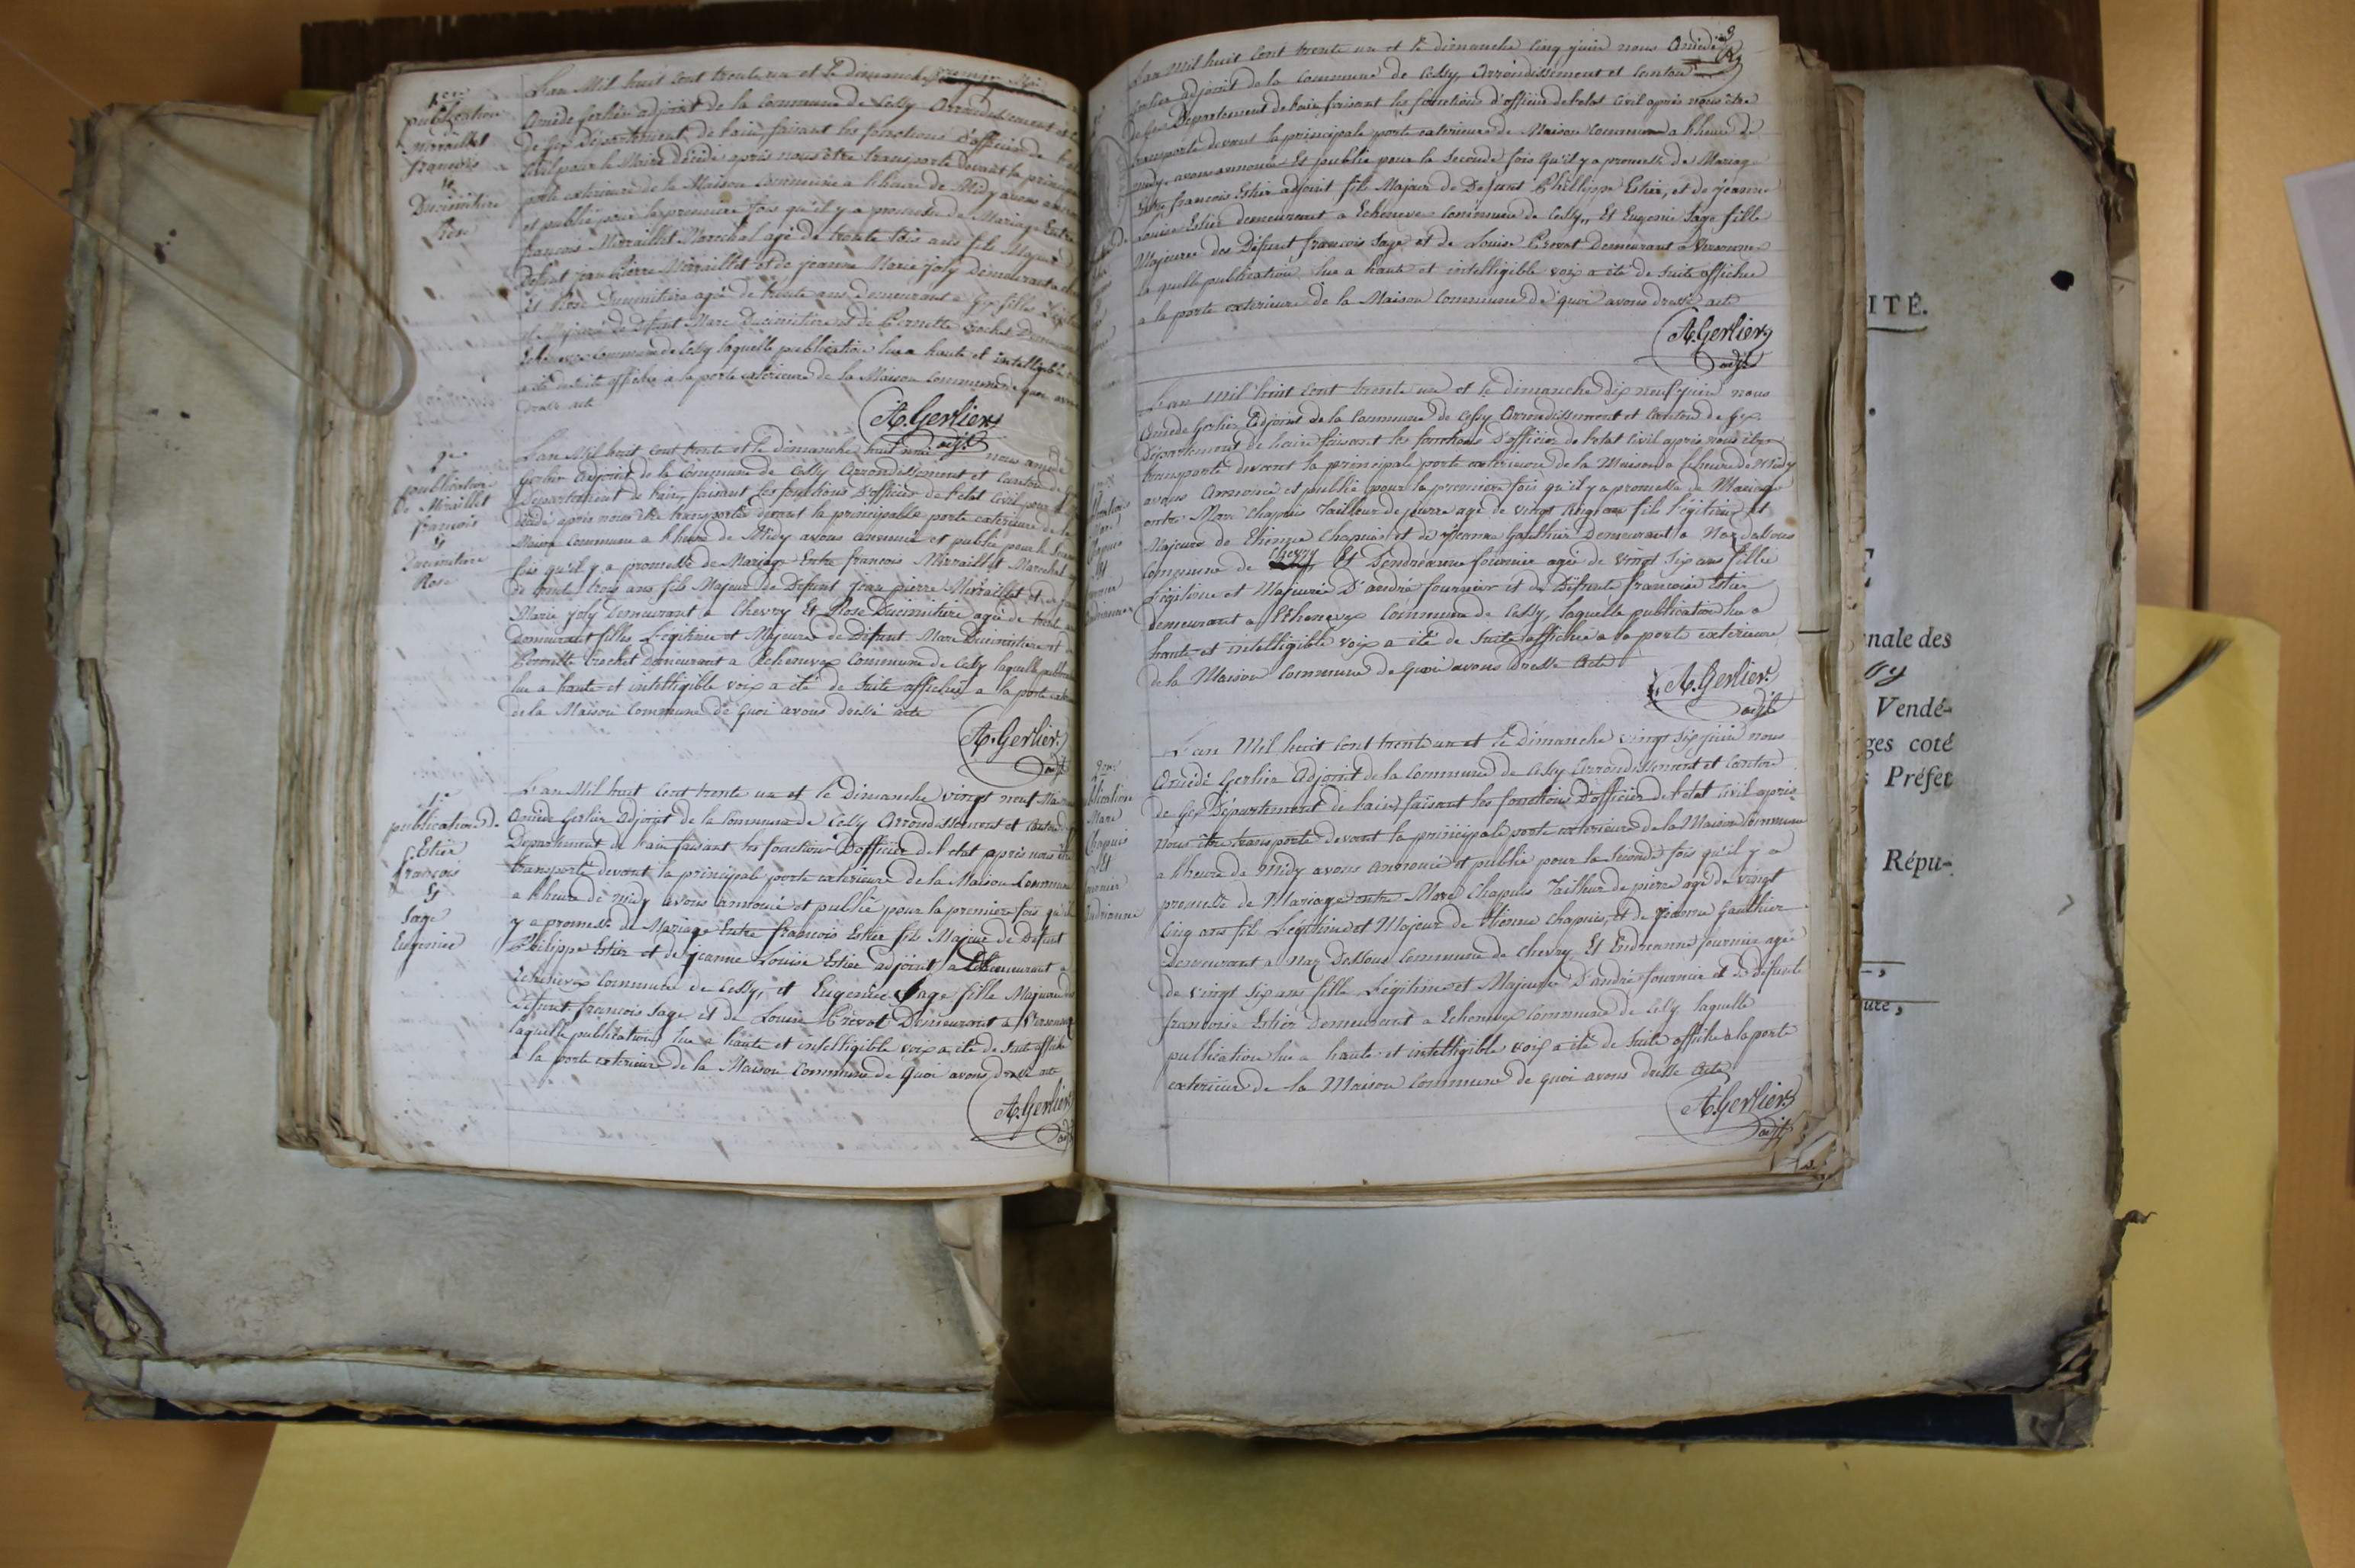 1ere
publication
Mirraillet
françois
et
Ducimitière
Rose
L'an Mil huit cent trente un et le dimanche premier Mai
Amédé Gerlier adjoint de la Commune de Cessy Arrondissement et
De Gex Département de l'ain, faisant les fonctions d'officier de l'etat
Civil pour le Maire Décédé après nous être transporté Devant la principale
porte exterieure de la Maison Commune a l'heure de Midy avons
et publié pour la premiere fois qu'il y a promesse de Mariage Entre
françois Mirraillet Marechal agé de trente trois ans fils Majeur
Defunt jean Pierre Mirraillet et de jeanne Marie joly demeurant a
Et Rose Ducimitière agée de trente ans demeurant a Gex fille
et Majeure de Defunt Marc Ducimitiere et de Pernette Crochet
Echenevex Commune de Cessy laquelle publication lue a haute et intelligible
a été de suite affichée a la porte exterieure de la Maison Commune de quoi avons
dressé acte
A. Gerlier
adjt
2e
publication
De Miraillet
françois
Et
Ducimitiere
Rose
L'an Mil huit cent trente et le dimanche huit mai nous amédé
Gerlier adjoint de la Commune de Cessy Arrondissement et Canton de
Département de l'ain, faisant les fonctions d'officier de l'etat Civil, pour le
décédé après nous être transporté devant la principalle porte exterieure de la
Maison Commune a l'heure de Midy avons annoncé et publié pour la
fois qu'il y a promesse de Mariage Entre françois Mirraillet Marechal
de trente trois ans fils Majeur de Defunt jean pierre Mirraillet et de
Marie joly demeurant a Chevry Et Rose Ducimitiere agée de trente
Demeurant filles Légitime et Majeure de Défunt Marc Ducimitiere et
Pernette Crochet demeurant a Echenevex Commune de Cessy laquelle
lue a haute et intelligible voix a été de suite affichée a la porte
de la Maison Commune de quoi avons dréssé acte
A. Gerlier
adjt
1e
publication de
Estier
françois
Et
Sage
Eugenie
L'an Mil huit Cent trente un et le Dimanche vingt neuf Mai
Amédé Gerlier Adjoint de la Commune de Cessy Arrondissement et Canton
Département de l'ain faisant les fonctions D'officier de l'etat après nous être
transporté devant la principale porte exterieure de la Maison Commune
a l'heure de midy avons annoncé et publié pour la premiere fois qu'il
y a promesse de Mariage Entre françois Estier fils Majeur de Défunt
Philippe Estier et de jeanne Louise Estier adjoint a demeurant a
Echenevex Commune de Cessy, et Eugenie Sage fille Majeure
Défunt françois Sage et de Louise Prevot Demeurant a Versonnex
laquelle publication lue a haute et intelligible voix a été de suite affiché
a la porte exterieure de la Maison Commune de quoi avons dressé acte
A. Gerlier
adjt
L'an Mil huit Cent trente un et le dimanche Cinq juin nous Amédé
Gerlier adjoint de la Commune de Cessy Arrondissement et Canton
de Gex Département de l'ain faisant les fonctions d'officier de l'etat Civil après nous être
transporté devant la principale porte exterieure de Maison Commune a l'heure de
midy avons annoncé Et publié pour la seconde fois qu'il y a promesse de Mariage
Entre françois Estier adjoint fils Majeur de Defunt Philippe Estier, et de jeanne
Louise Estier demeurant a Echenevex Commune de Cessy, Et Eugenie Sage fille
Majeure des Défunt francois Sage et de Louise Prevot Demeurant a Versonnex
la quelle publication lue a haute et intelligible voix a été de suite affiche
a la porte exterieure de la Maison Commune de quoi avons dressé acte
A. Gerlier
adjt
L'an Mil huit Cent trente un et le dimanche dix neuf juin nous
Amédé Gerlier Adjoint de la Commune de Cessy Arrondissement et Canton de Gex
Département de l'ain faisant les fonctions d'officier de l'etat Civil après nous être
transporté devant la principale porte exterieure de la Maison a l'heure de Midy
avons annoncé et publié pour la premiere fois qu'il y a promesse de Mariage
entre Marc Chapuis Tailleur de pierre agé de vingt cinq ans fils légitime et
Majeure de Etienne Chapuis et de jeanne Gauthier Demeurant a Naz dessous
Chevry
Commune de Et Andréanne fournier agée de vingt six ans fille
Légitime et Majeure D'andré fournier et de Défunte françoise Estier
demeurant a Echenevex Commune de Cessy, laquelle publication lue a
haute et intelligible voix a été de suite affichée a la porte exterieure
de la Maison Commune de quoi avons dressé acte
A. Gerlier
adjt
2eme
publication
Marc
Chapuis
Et
fournier
Andrianne
L'an Mil huit Cent trente un et le Dimanche vingt six juin nous
Amédé Gerlier Adjoint de la Commune de Cessy Arrondissement et Canton
de Gex Département de l'ain, faisant les fonctions D'officier de l'etat Civil après
nous être transporté devant la principale porte exterieure de la Maison Commune
a l'heure de midy avons annoncé et publié pour la seconde fois qu'il y a
promesse de Mariage entre Marc Chapuis Tailleur de pierre agé de vingt
Cinq ans fils Légitime et Majeur de Etienne Chapuis, et de jeanne Gauthier
Demeurant a Naz Dessous Commune de Chevry Et Andreanne fournier agée
de vingt six ans fille Légitime et Majeure D'andré fournier et de Défunte
françoise Estier demeurant a Echenevex Commune de Cessy laquelle
publication lue a haute et intelligible voix a été de suite affiche a la porte
exterieure de la Maison Commune de quoi avons dressé acte
A. Gerlier
adjt
ITÉ.
nale des
Vendé-
ges coté
Préfet
Répu-